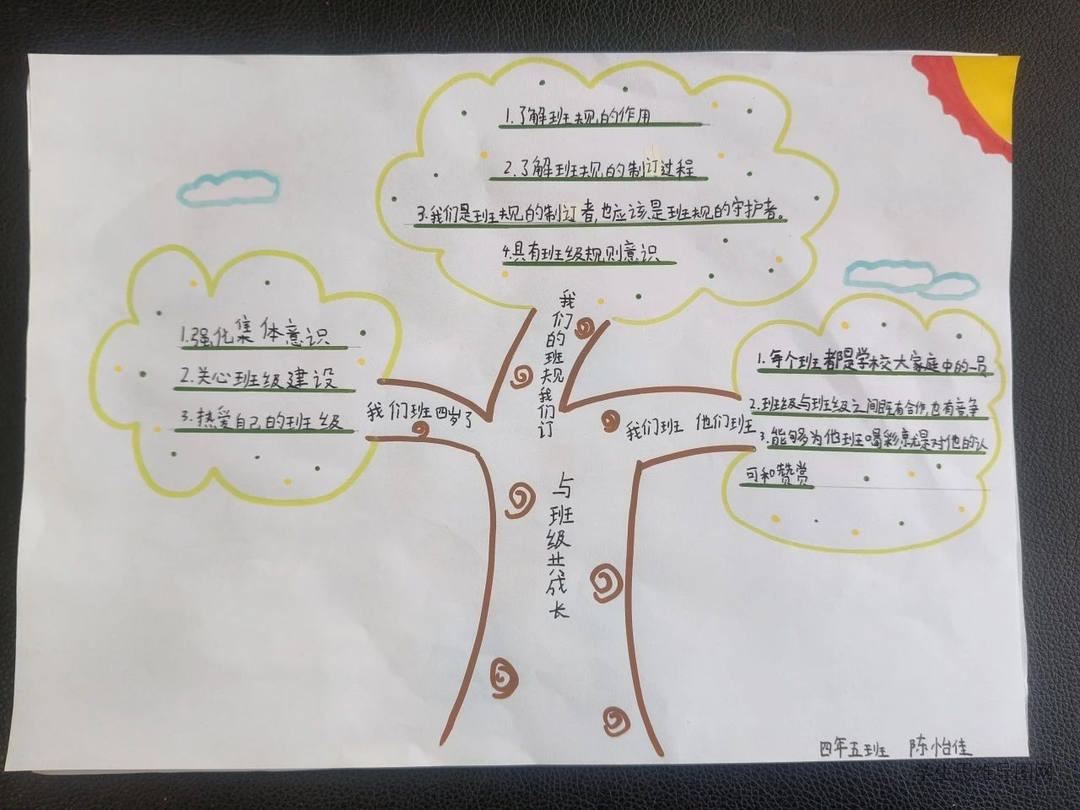 1.了解班规的作用
2.了解班规的制订过程
3.我们是班规的制订者,也应该是班规的守护者。
4.具有班级规则意识
我们的班规我们订
1.强化集体意识
2.关心班级建设
3.热爱自己的班级
我们班四岁了
1.每个班都是学校大家庭中的一员
2.班级与班级之间既有合作,也有竞争
3.能够为他班喝彩就是对他的认
可和赞赏
我们班 他们班
与班级共成长
四年五班 陈怡佳
学生思维导图网